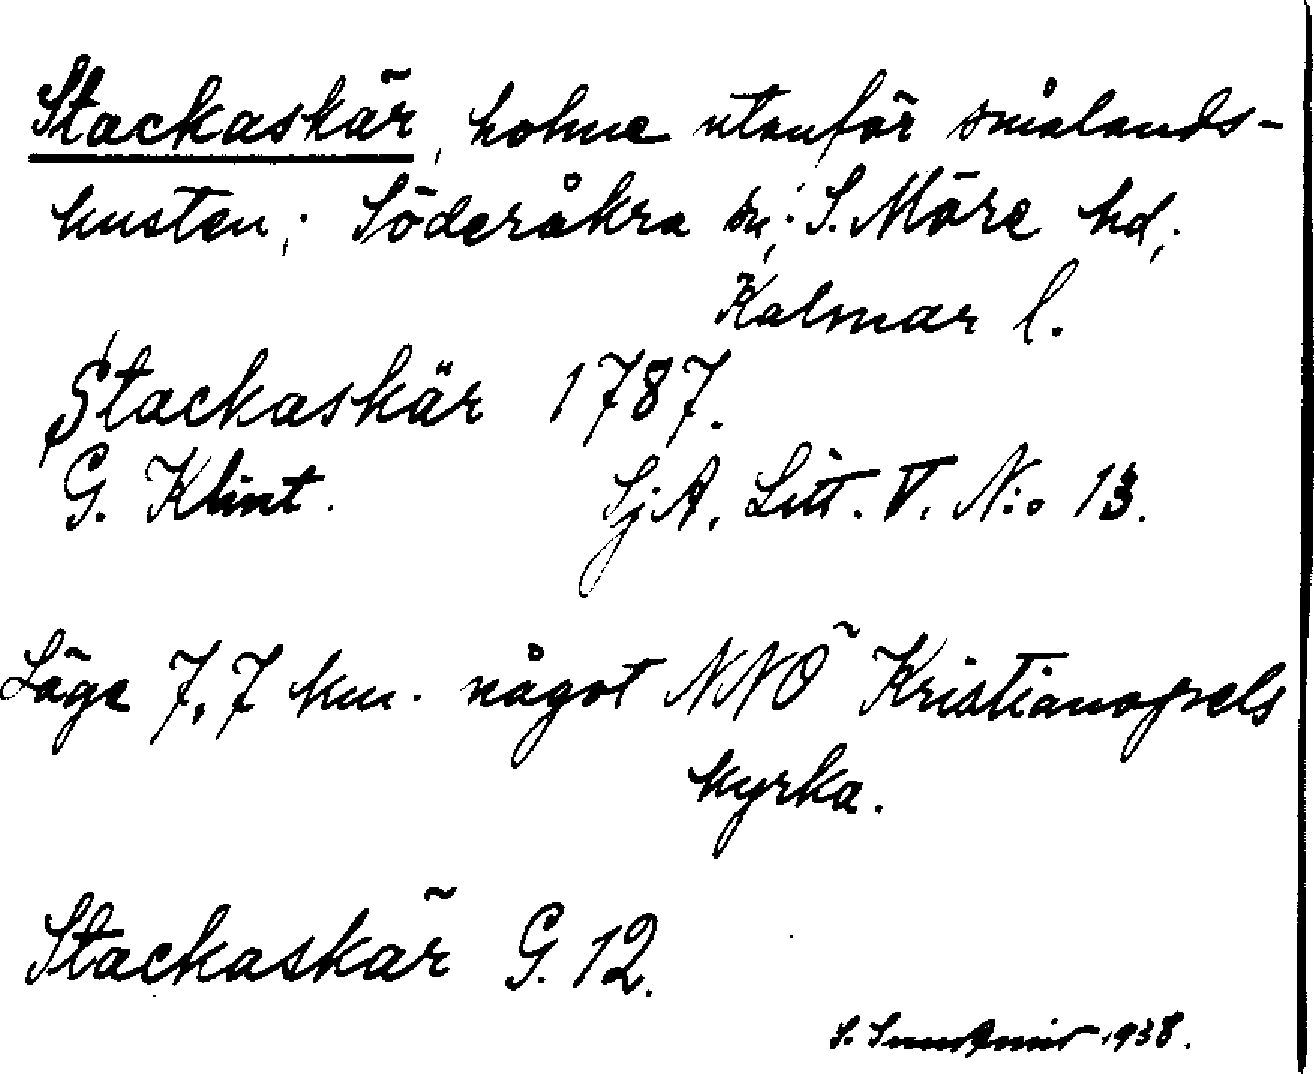 Stackaskär, holme utanför smålands-
kusten; Söderåkra sn; S. Möre hd;
Kalmar l.
Stackaskär 1787.
G. Klint. Sj.A. Litt. V. N:o 13.
Läge 7,7 km. något NNÖ Kristianopels
kyrka.
Stackaskär G. 12.
S. 1938.